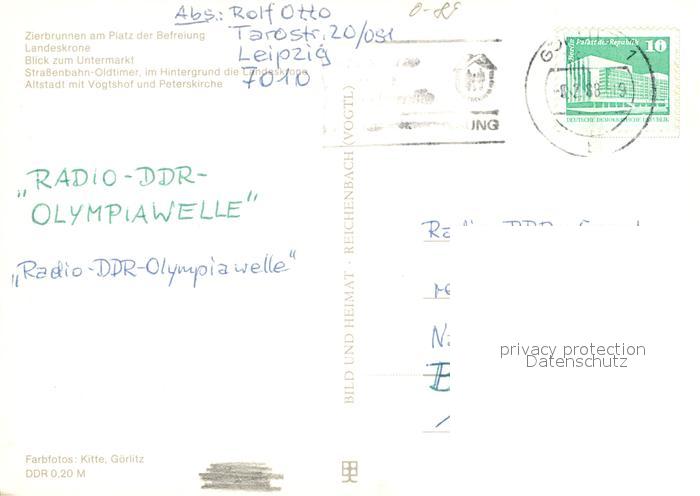 Abs.: Rolf Otto
Tarostr. 20/091
Leipzig
7010
Zierbrunnen am Platz der Befreiung
Landeskrone
Blick zum Untermarkt
Straßenbahn-Oldtimer, im Hintergrund die Landeskrone
Altstadt mit Vogtshof und Peterskirche
Palast der Republik 10
DEUTSCHE DEMOKRATISCHE REPUBLIK
„RADIO-DDR-
OLYMPIAWELLE"
„Radio-DDR-Olympiawelle"
BILD UND HEIMAT · REICHENBACH (VOGTL)
privacy protection
Datenschutz
Farbfotos: Kitte, Görlitz
DDR 0,20 M